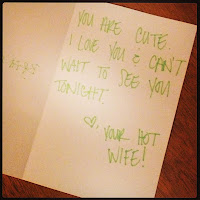 YOU ARE CUTE.
I LOVE YOU & CAN'T
WAIT TO SEE YOU
TONIGHT.
♡, YOUR HOT
WIFE!